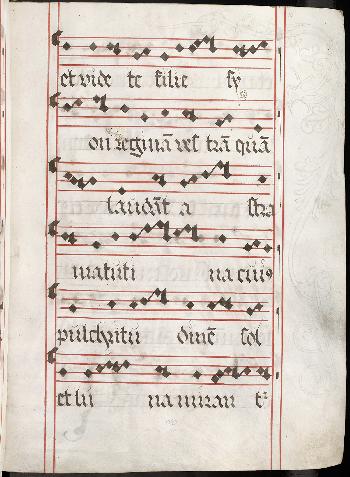 et vide te filie sy
on reginā vestrā quā
laudāt a stra
matuti na cuiꝰ
pulchritu dinē sol
et lu na miran t᷑